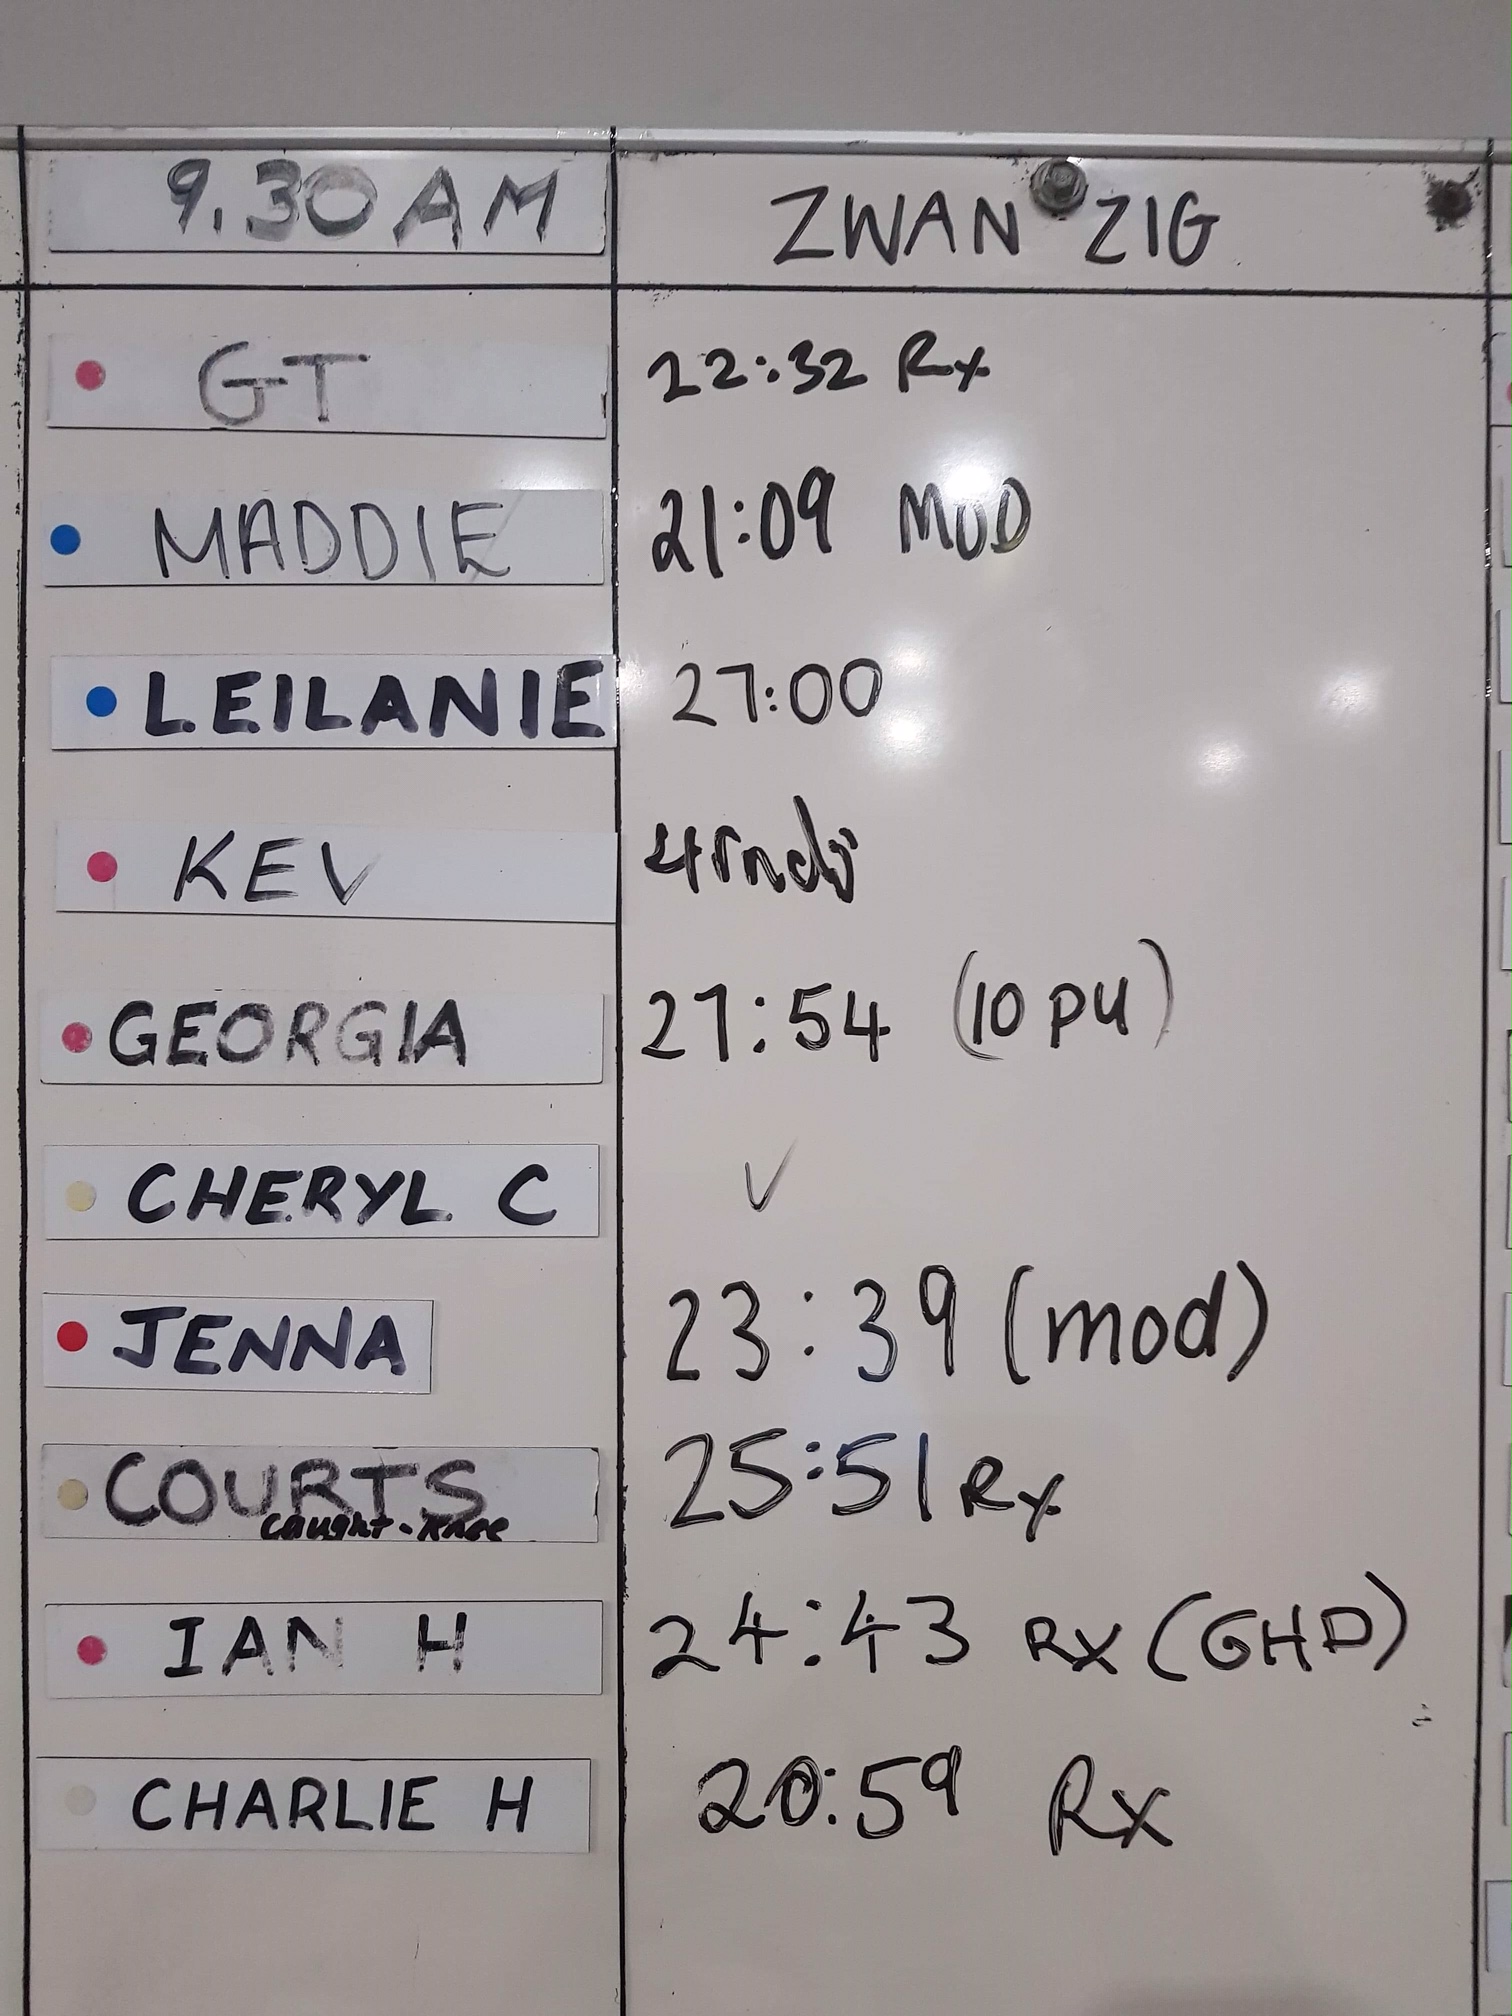 9.30AM ZWAN ZIG
GT 22:32 Rx
MADDIE 21:09 MOD
LEILANIE 27:00
KEV 4 rnds
GEORGIA 27:54 (10 PU)
CHERYL C ✓
JENNA 23:39 (mod)
COURTS 25:51 Rx
caught-knee
IAN H 24:43 RX (GHD)
CHARLIE H 20:59 Rx